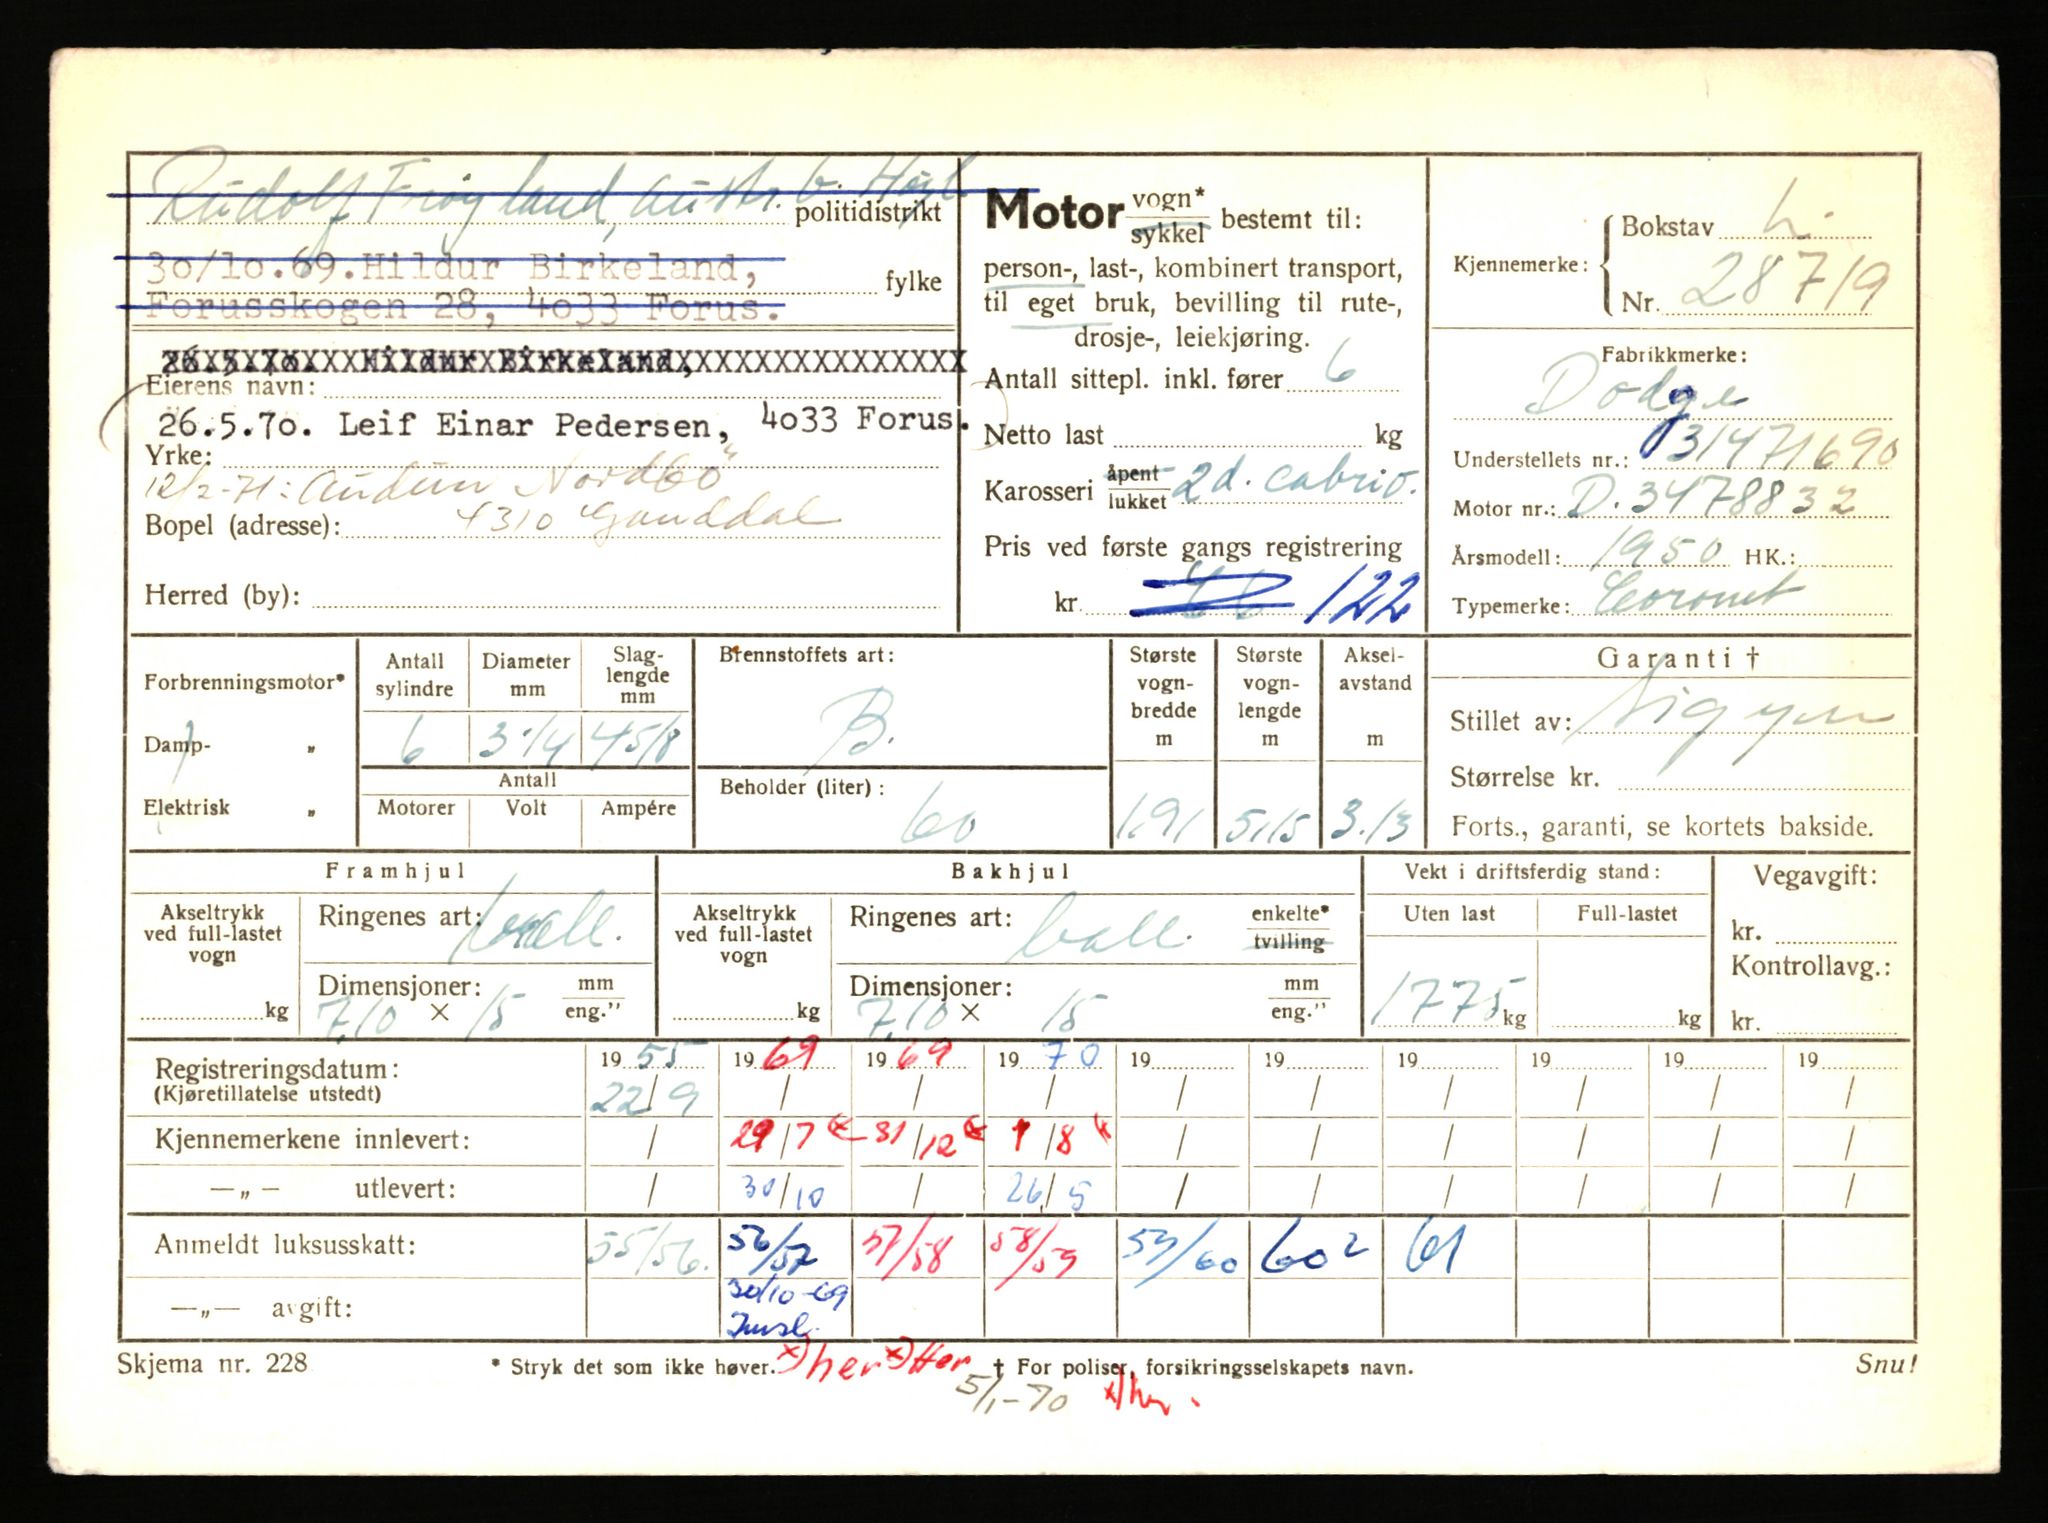 Rudolf Frøyland, Austr. b. Høyl
politidistrikt
30/10.69. Hildur Birkeland,
fylke
Forusskogen 28, 4033 Forus.
26.5.70. Hildur Birkeland,
Eierens navn:
26.5.70. Leif Einar Pedersen, 4033 Forus.
Yrke:
12/2-71: Audun Nordbö
Bopel (adresse): 4310 Ganddal
Herred (by):
Motor vogn* sykkel bestemt til:
person-, last-, kombinert transport,
til eget bruk, bevilling til rute-,
drosje-, leiekjøring.
Antall sittepl. inkl. fører 6
Netto last kg
Karosseri åpent lukket 2d. cabrio.
Pris ved første gangs registrering
kr. 122
Kjennemerke: Bokstav L.
Nr. 28719
Fabrikkmerke:
Dodge
Understellets nr.: 31471690
Motor nr.: D.3478832
Årsmodell: 1950 HK.:
Typemerke: Coronet
Forbrenningsmotor*
Damp- „
Elektrisk „
Antall sylindre
6
Diameter mm
3.1/4
Slag-lengde mm
4 5/8
Antall
Motorer Volt Ampére
Brennstoffets art:
B.
Beholder (liter):
60
Største vogn-bredde m
1,91
Største vogn-lengde m
5,15
Aksel-avstand m
3.13
Garanti †
Stillet av: Sigyn
Størrelse kr.
Forts., garanti, se kortets bakside.
Framhjul
Akseltrykk ved full-lastet vogn
kg
Ringenes art: ball.
Dimensjoner: mm eng.”
7,10 × 15
Bakhjul
Akseltrykk ved full-lastet vogn
kg
Ringenes art: ball. enkelte* tvilling
Dimensjoner: mm eng.”
7,10 × 15
Vekt i driftsferdig stand:
Uten last Full-lastet
1775 kg kg
Vegavgift:
kr.
Kontrollavg.:
kr.
Registreringsdatum: 19 55 19 69 19 69 19 70 19 19 19 19 19 19
(Kjøretillatelse utstedt) 22/9 / / / / / / / / /
Kjennemerkene innlevert: / 29/7 * 31/12 * 1/8 * / / / / / /
—„— utlevert: / 30/10 / 26/5 / / / / / /
Anmeldt luksusskatt: 55/56. 56/57 57/58 58/59 59/60 60 2 61
—„— avgift: 30/10-69
Skjema nr. 228 * Stryk det som ikke høver. *) her *) Her † For poliser, forsikringsselskapets navn. Snu!
5/1-70 *) her.